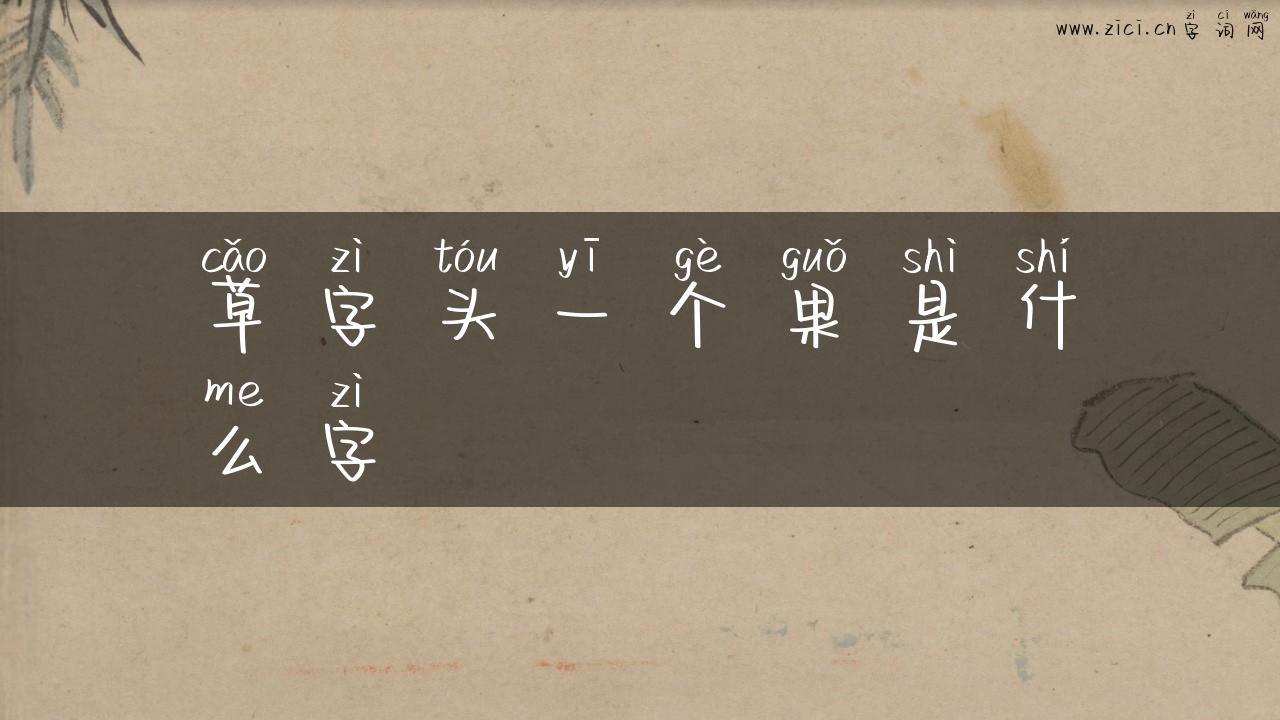 zì cí wǎng
www.zici.cn 字 词 网
cǎo zì tóu yī gè guǒ shì shí
草 字 头 一 个 果 是 什
me zì
么 字